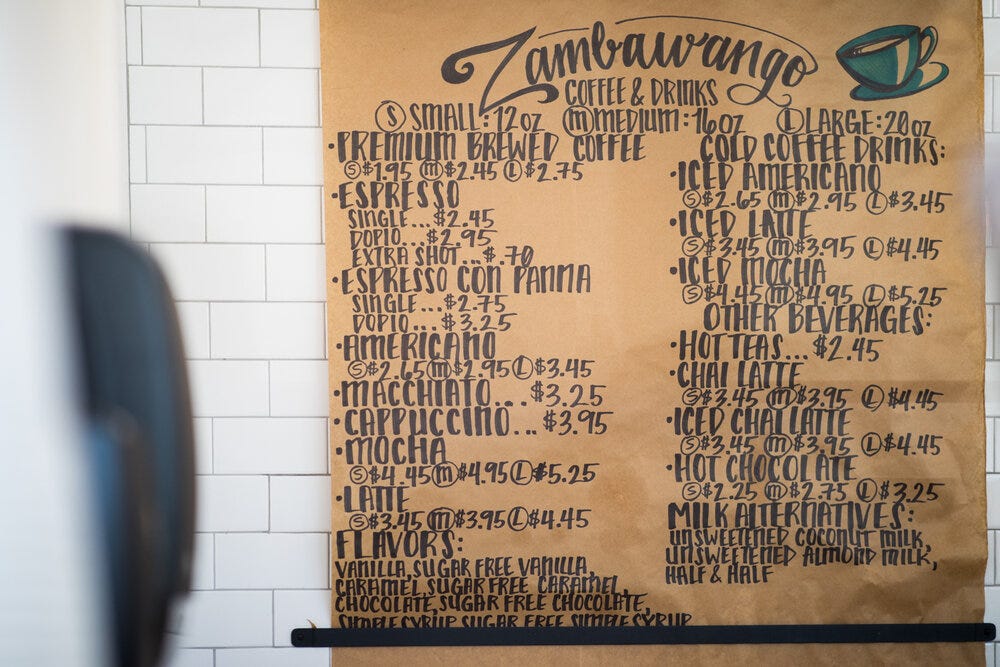 Zambawango
COFFEE & DRINKS
Ⓢ SMALL: 12 oz Ⓜ MEDIUM: 16 oz Ⓛ LARGE: 20 oz
• PREMIUM BREWED COFFEE
Ⓢ $1.95 Ⓜ $2.45 Ⓛ $2.75
• ESPRESSO
SINGLE... $2.45
DOPIO... $2.95
EXTRA SHOT... $.70
• ESPRESSO CON PANNA
SINGLE... $2.75
DOPIO... $3.25
• AMERICANO
Ⓢ $2.65 Ⓜ $2.95 Ⓛ $3.45
• MACCHIATO.... $3.25
• CAPPUCCINO... $3.95
• MOCHA
Ⓢ $4.45 Ⓜ $4.95 Ⓛ $5.25
• LATTE
Ⓢ $3.45 Ⓜ $3.95 Ⓛ $4.45
FLAVORS:
VANILLA, SUGAR FREE VANILLA,
CARAMEL, SUGAR FREE CARAMEL,
CHOCOLATE, SUGAR FREE CHOCOLATE,
SIMPLE SYRUP, SUGAR FREE SIMPLE SYRUP
COLD COFFEE DRINKS:
• ICED AMERICANO
Ⓢ $2.65 Ⓜ $2.95 Ⓛ $3.45
• ICED LATTE
Ⓢ $3.45 Ⓜ $3.95 Ⓛ $4.45
• ICED MOCHA
Ⓢ $4.45 Ⓜ $4.95 Ⓛ $5.25
OTHER BEVERAGES:
• HOT TEAS... $2.45
• CHAI LATTE
Ⓢ $3.45 Ⓜ $3.95 Ⓛ $4.45
• ICED CHAI LATTE
Ⓢ $3.45 Ⓜ $3.95 Ⓛ $4.45
• HOT CHOCOLATE
Ⓢ $2.25 Ⓜ $2.75 Ⓛ $3.25
MILK ALTERNATIVES:
UNSWEETENED COCONUT MILK,
UNSWEETENED ALMOND MILK,
HALF & HALF